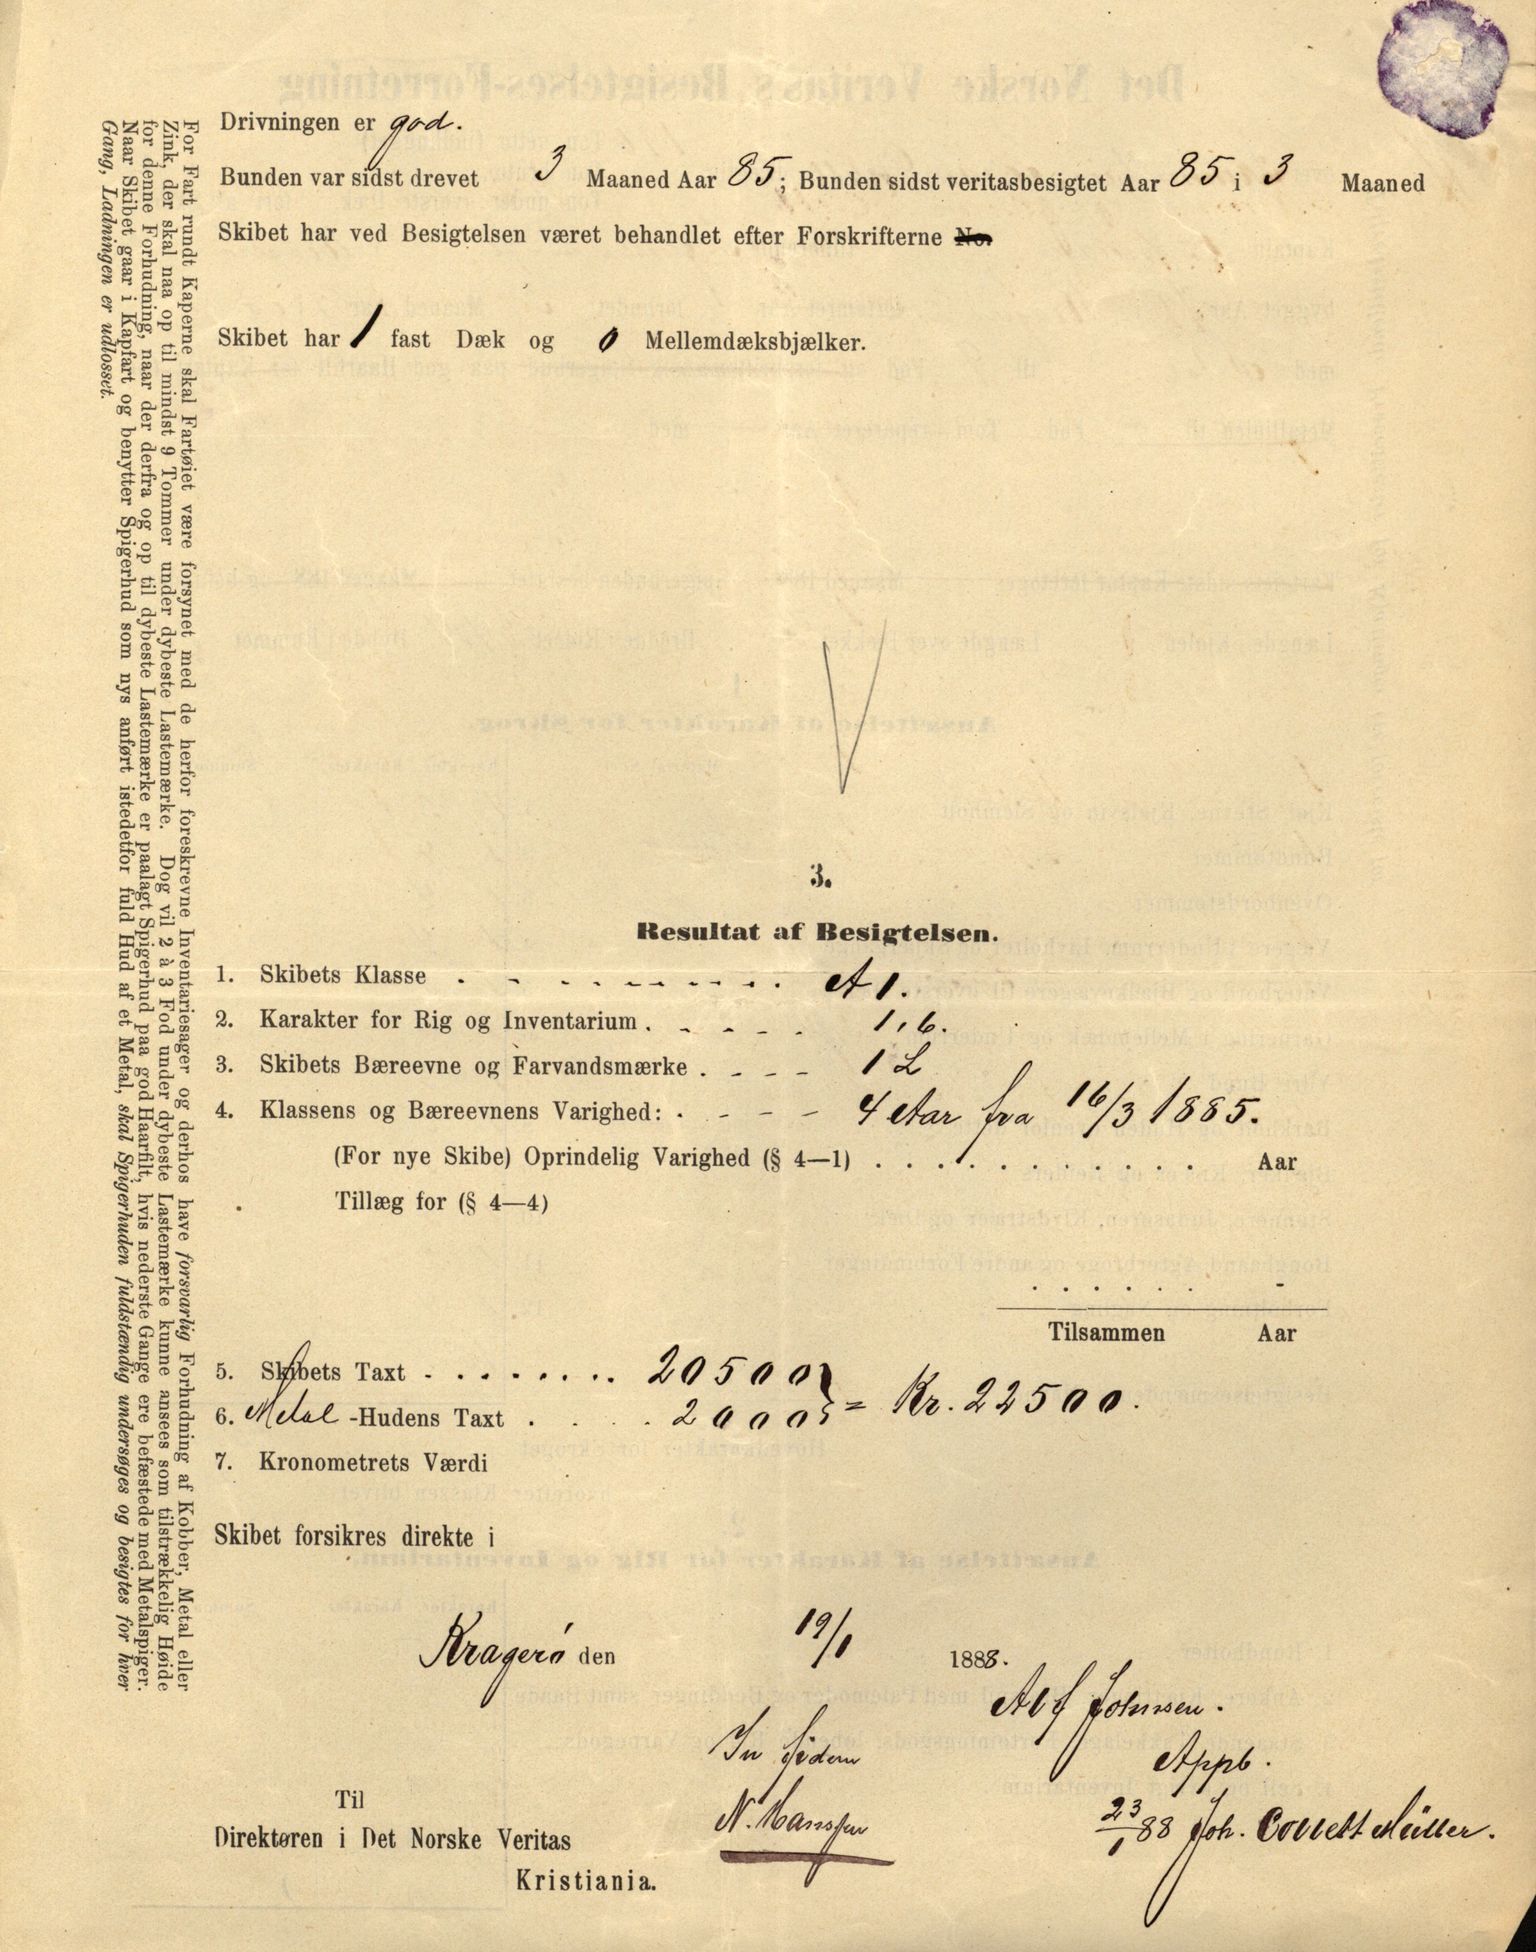 Drivningen er god.
Bunden var sidst drevet 3 Maaned Aar 85; Bunden sidst veritasbesigtet Aar 85 i 3 Maaned
Skibet har ved Besigtelsen været behandlet efter Forskrifterne No.
Skibet har 1 fast Dæk og 0 Mellemdæksbjælker.
3.
Resultat af Besigtelsen.
1. Skibets Klasse . . . . . . . . . . A 1.
2. Karakter for Rig og Inventarium . . . . . 1,6.
3. Skibets Bæreevne og Farvandsmærke . . . . 1 L
4. Klassens og Bæreevnens Varighed: . . . . 4 Aar fra 16/3 1885.
(For nye Skibe) Oprindelig Varighed (§ 4—1) . . . . . . . . . . . . Aar
Tillæg for (§ 4—4)
. . . . . .
Tilsammen Aar
5. Skibets Taxt . . . . . . . . 20500
6. Metal-Hudens Taxt . . . . 2000 } = Kr. 22500.
7. Kronometrets Værdi
Skibet forsikres direkte i
Kragerø den 19/1 1888.
Alf Johnsen.
In fidem
Appb.
N. Hanssen
23/1 88 Joh. Collett Müller.
Til
Direktøren i Det Norske Veritas
Kristiania.
For Fart rundt Kaperne skal Fartøiet være forsynet med de herfor foreskrevne Inventariesager og derhos have forsvarlig Forhudning af Kobber, Metal eller
Zink, der skal naa op til mindst 9 Tommer under dybeste Lastemærke. Dog vil 2 à 3 Fod under dybeste Lastemærke kunne ansees som tilstrækkelig Høide
for denne Forhudning, naar der derfra og op til dybeste Lastemærke er paalagt Spigerhud paa god Haarfilt, hvis nederste Gange ere befæstede med Metalspiger.
Naar Skibet gaar i Kapfart og benytter Spigerhud som nys anført istedetfor fuld Hud af et Metal, skal Spigerhuden fuldstændig undersøges og besigtes for hver
Gang, Ladningen er udlosset.